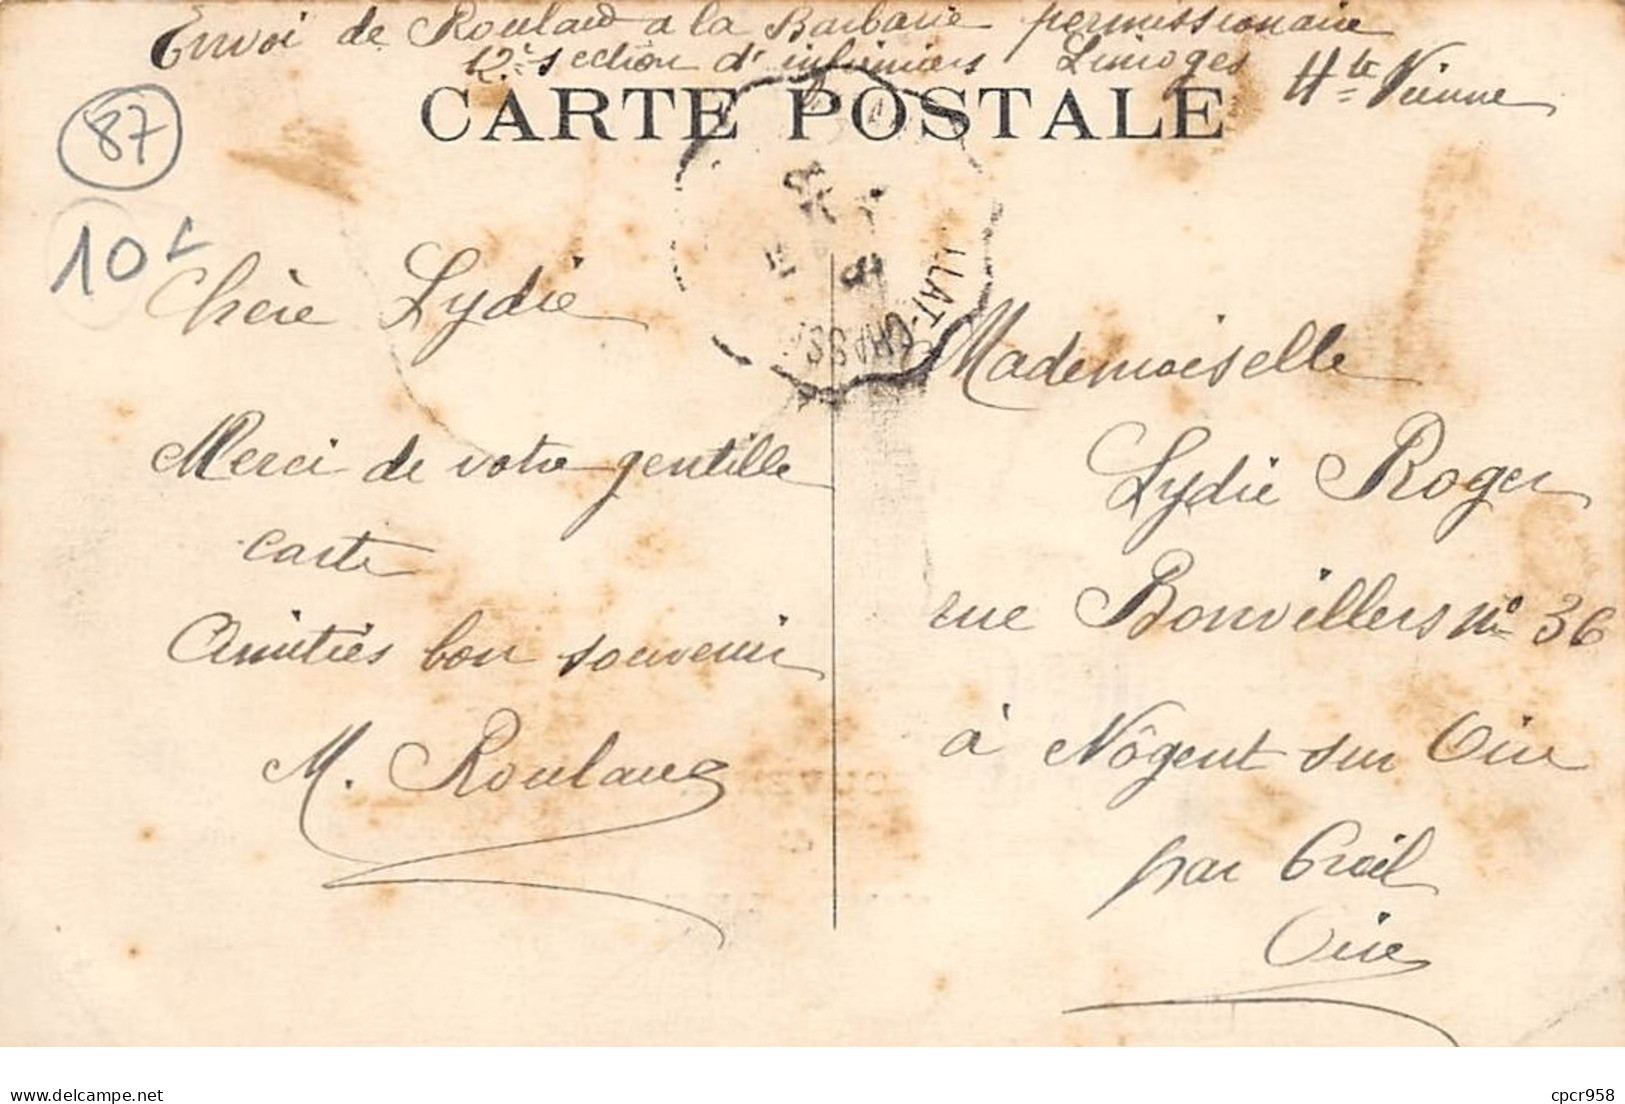 Envoi de Roulaud a la Barbarie permissionnaire
12e section d'infirmiers Limoges Hte Vienne
CARTE POSTALE
87
10
LLAT-CHASSE
Chère Lydie
Merci de votre gentille
carte
Amitiés bon souvenir
M. Roulaud
Mademoiselle
Lydie Roger
rue Bonvillers No 36
à Nôgent sur Oise
par Creil
Oise
www.delcampe.net
cpcr958